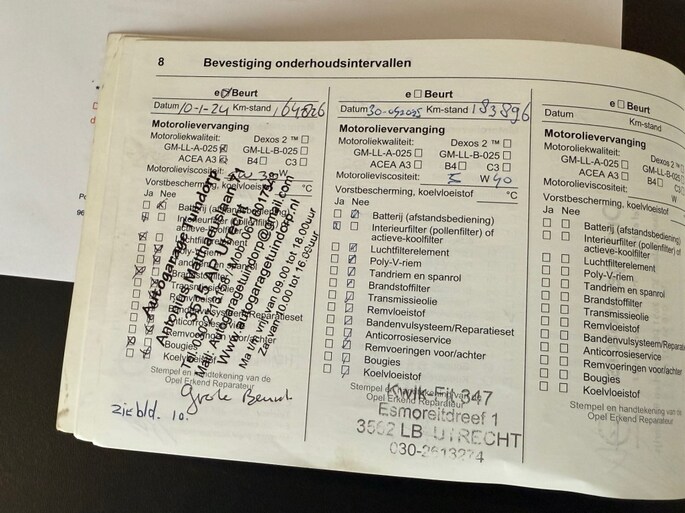 8 Bevestiging onderhoudsintervallen
e Beurt
Datum 10-1-24 Km-stand 164826
Motorolievervanging
Motoroliekwaliteit: Dexos 2 ™
GM-LL-A-025 GM-LL-B-025
ACEA A3 B4 C3
Motorolieviscositeit: W
Vorstbescherming, koelvloeistof °C
Ja Nee
Batterij (afstandsbediening)
Interieurfilter (pollenfilter) of
actieve-koolfilter
Luchtfilterelement
Poly-V-riem
Tandriem en spanrol
Brandstoffilter
Transmissieolie
Remvloeistof
Bandenvulsysteem/Reparatieset
Anticorrosieservice
Remvoeringen voor/achter
Bougies
Koelvloeistof
Stempel en handtekening van de
Opel Erkend Reparateur
Autogarage Tuindorp
3515 AP Utrecht
Mail: Autogaragetuindorp@gmail.com
Www.autogaragetuindorp.nl
Ma t/m vrij van 09.00 tot 18.00uur
Za: van 10.00 tot 16.00uur
Grote Beurt
zie bld. 10.
e Beurt
Datum Km-stand 183896
Motorolievervanging
Motoroliekwaliteit: Dexos 2 ™
GM-LL-A-025 GM-LL-B-025
ACEA A3 B4 C3
Motorolieviscositeit: 5 W 40
Vorstbescherming, koelvloeistof °C
Ja Nee
Batterij (afstandsbediening)
Interieurfilter (pollenfilter) of
actieve-koolfilter
Luchtfilterelement
Poly-V-riem
Tandriem en spanrol
Brandstoffilter
Transmissieolie
Remvloeistof
Bandenvulsysteem/Reparatieset
Anticorrosieservice
Remvoeringen voor/achter
Bougies
Koelvloeistof
Stempel en handtekening van de
Opel Erkend Reparateur
Kwik-Fit 347
Esmoreitdreef 1
3562 LB UTRECHT
030-2613274
e Beurt
Datum Km-stand
Motorolievervanging
Motoroliekwaliteit: Dexos 2
GM-LL-A-025 GM-LL-B-025
ACEA A3 B4 C3
Motorolieviscositeit: W
Vorstbescherming, koelvloeistof
Ja Nee
Batterij (afstandsbediening)
Interieurfilter (pollenfilter) of
actieve-koolfilter
Luchtfilterelement
Poly-V-riem
Tandriem en spanrol
Brandstoffilter
Transmissieolie
Remvloeistof
Bandenvulsysteem/Repara
Anticorrosieservice
Remvoeringen voor/achter
Bougies
Koelvloeistof
Stempel en handtekening van de
Opel Erkend Reparateur